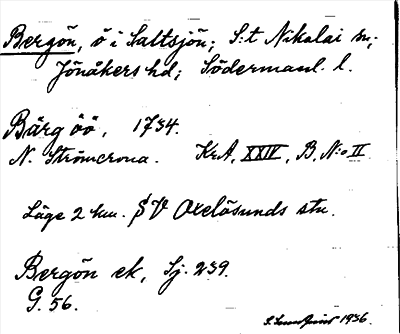 Bergön, ö i Saltsjön; S:t Nikolai sn;
Jönåkers hd; Södermanl. l.
Bärg öö, 1734.
N. Strömcrona. KrA, XXIV, B, N:o II
Läge 2 km. SV Oxelösunds stn.
Bergön ek, Sj. 239.
G. 56.
1936.